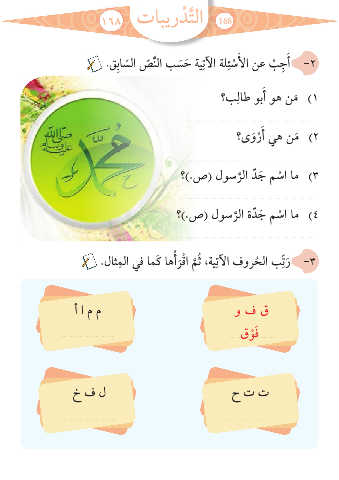 ١٦٨ التَّدْريبات 168
٢- أَجِبْ عن الأَسْئِلة الآتِية حَسَب النَّصّ السّابِق.
١) مَن هو أَبو طالِب؟
٢) مَن هي أَرْوَى؟
٣) ما اسْم جَدّ الرَّسول (ص.)؟
٤) ما اسْم جَدّة الرَّسول (ص.)؟
محمد
صلى الله عليه وسلم
٣- رَتِّب الحُروف الآتِية، ثُمَّ اقْرَأْها كَما في المِثال.
ق ف و
فَوْق
م م ا أ
ت ت ح
ل ف خ